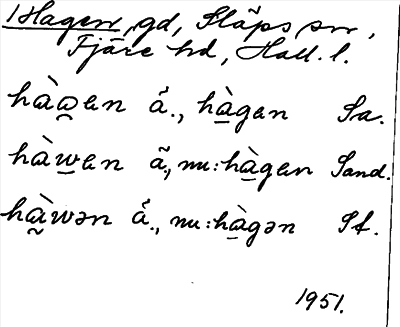 Hagen, gd, Släps sn,
Fjäre hd, Hall. l.
hàωan ấ., hàgan Sa.
hàwan ã., nu: hàgan Sand.
hàwən ấ., nu: hàgən Sf.
1951.